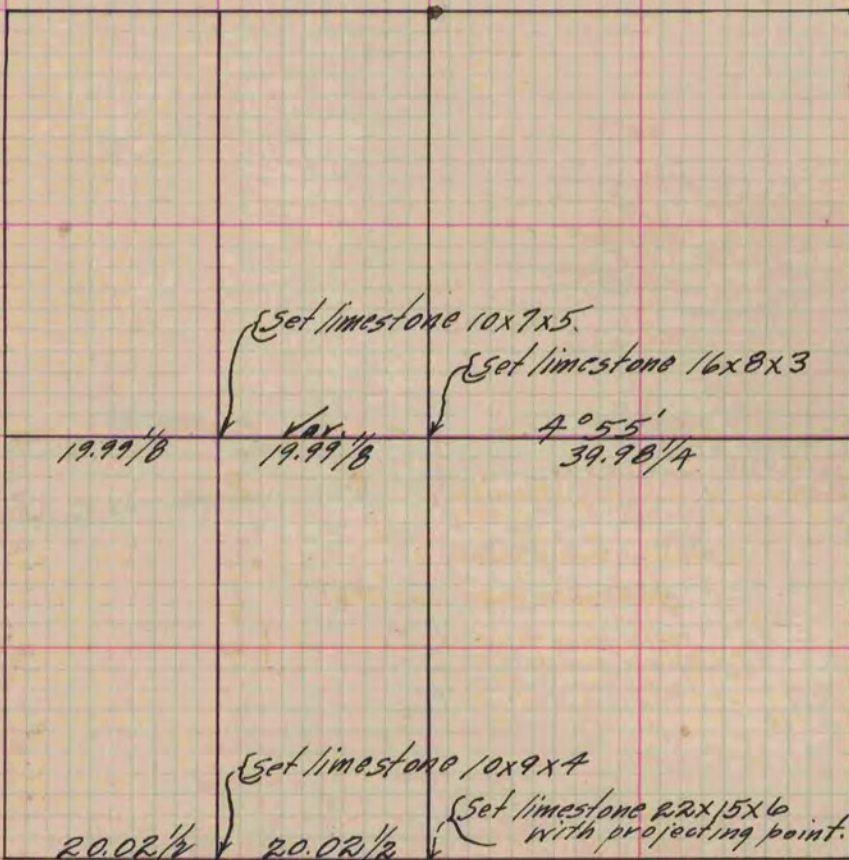 Set limestone 10x7x5.
Set limestone 16x8x3
Var. 4°55'
19.99 1/8 19.99 1/8 39.98 1/4
Set limestone 10x9x4
Set limestone 22x15x6
with projecting point.
20.02 1/2 20.02 1/2